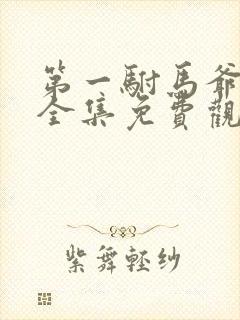 第一駙馬爺
全集免費觀
紫舞輕紗